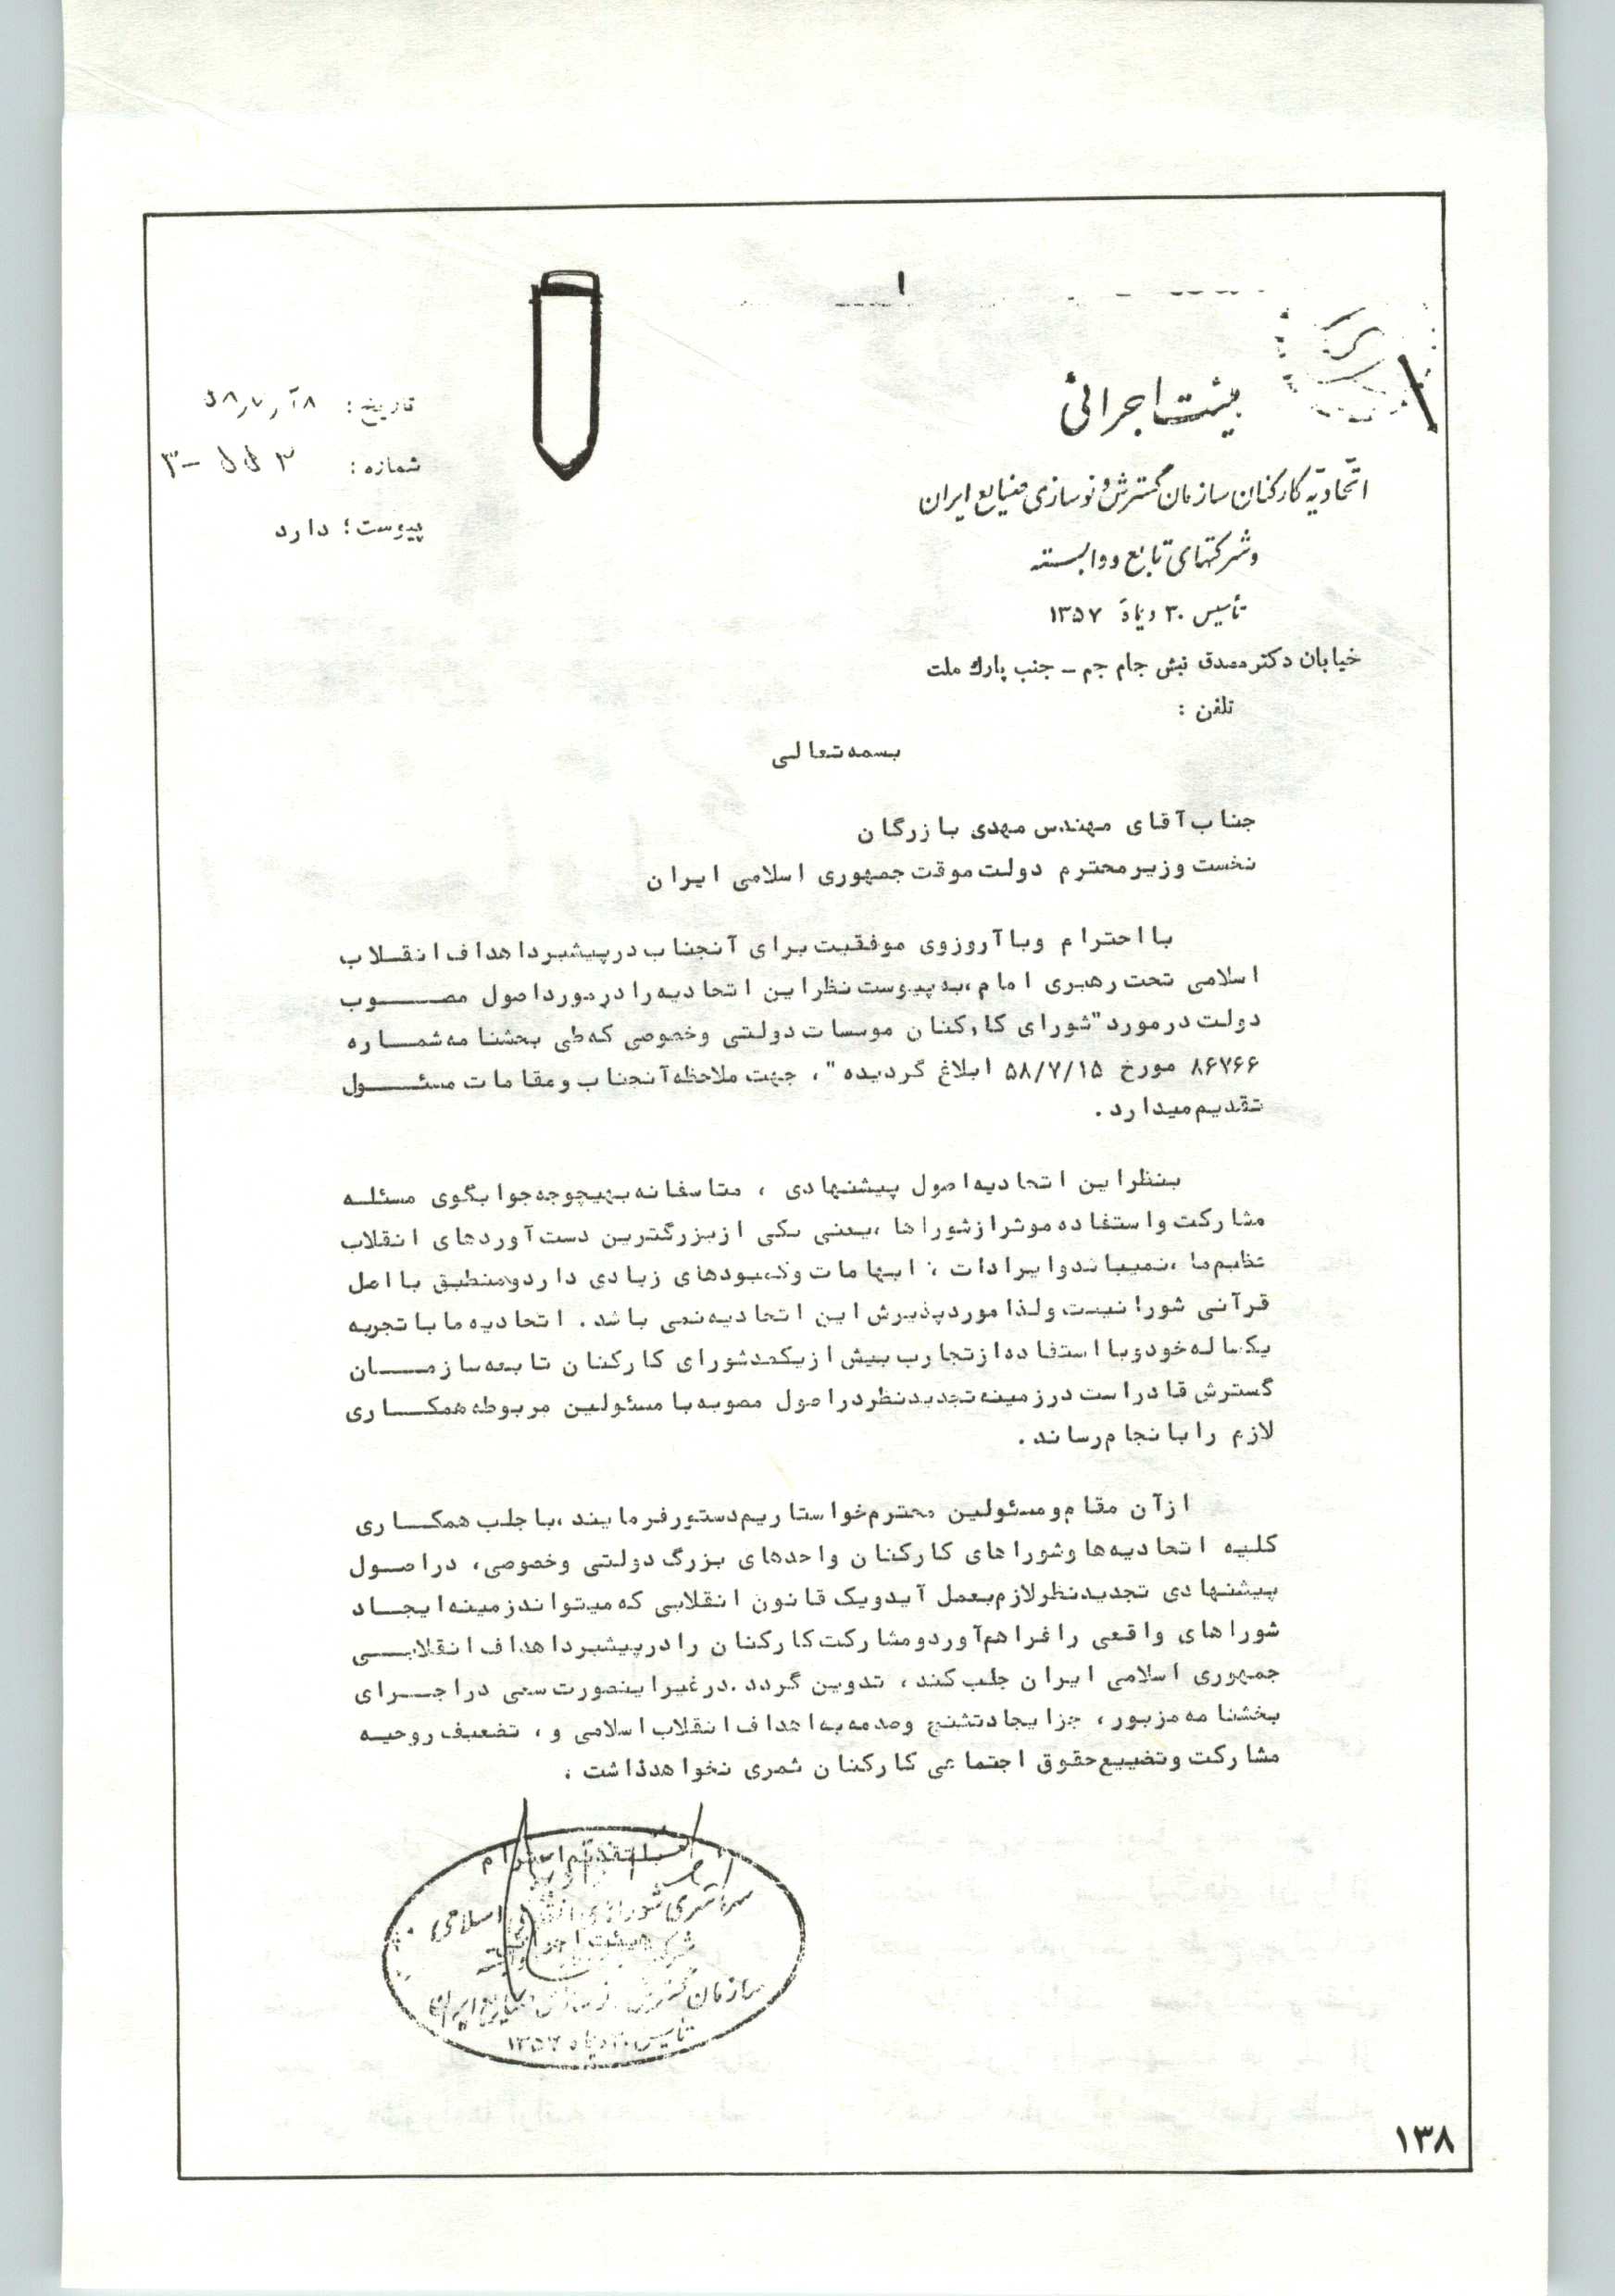 ۱
هیئت اجرائی
اتحادیه کارکنان سازمان گسترش و نوسازی صنایع ایران
و شرکتهای تابع و وابسته
تأسیس ۳۰ دیماه ۱۳۵۷
خیابان دکتر مصدق نبش جام جم ـ جنب پارک ملت
تلفن :
تاریخ :
شماره :
پیوست : دارد
بسمه تعالی
جناب آقای مهندس مهدی بازرگان
نخست وزیر محترم دولت موقت جمهوری اسلامی ایران
با احترام وبا آروزوی موفقیت برای آنجناب در پیشبرد اهداف انقلاب
اسلامی تحت رهبری امام ،به پیوست نظر این اتحادیه را در مورد اصول مصوب
دولت در مورد "شورای کارکنان موسسات دولتی وخصوصی که طی بخشنامه شماره
۸۶۷۶۶ مورخ ۵۸/۷/۱۵ ابلاغ گردیده" ، جهت ملاحظه آنجناب ومقامات مسئول
تقدیم میدارد .
بنظر این اتحادیه اصول پیشنهادی ، متاسفانه بهیچوجه جوابگوی مسئله
مشارکت واستفاده موثر از شوراها ،یعنی یکی از بزرگترین دست آوردهای انقلاب
عظیم ما ،نمیباند وایرادات ، ابهامات وکمبودهای زیادی دارد ومنطبق با اصل
قرآنی شورا نیست ولذا مورد پذیرش این اتحادیه نمی باشد . اتحادیه ما با تجربه
یکساله خود وبا استفاده از تجارب بیش از یکصد شورای کارکنان تابعه سازمان
گسترش قادر است در زمینه تجدید نظر در اصول مصوبه با مسئولین مربوطه همکاری
لازم را با نجام رساند .
از آن مقام ومسئولین محترم خواستاریم دستور فرمایند ،با جلب همکاری
کلیه اتحادیه ها وشوراهای کارکنان واحدهای بزرگ دولتی وخصوصی، در اصول
پیشنهادی تجدید نظر لازم بعمل آید ویک قانون انقلابی که میتواند زمینه ایجاد
شوراهای واقعی را فراهم آورد ومشارکت کارکنان را در پیشبرد اهداف انقلابی
جمهوری اسلامی ایران جلب کند ، تدوین گردد .در غیر اینصورت سعی در اجرای
بخشنامه مزبور ، جز ایجاد تشنج وصدمه به اهداف انقلاب اسلامی و ، تضعیف روحیه
مشارکت وتضییع حقوق اجتماعی کارکنان ثمری نخواهد داشت .
با تقدیم احترام
هیئت اجرائی
سازمان گسترش
تأسیس ۳۰ دیماه ۱۳۵۷
۱۳۸